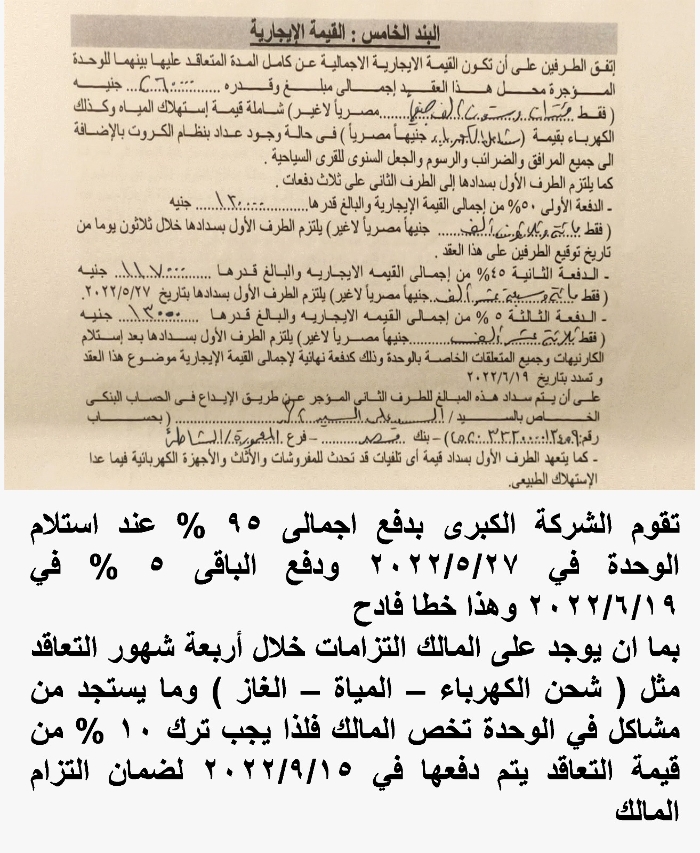 البند الخامس : القيمة الإيجارية
إتفق الطرفين على أن تكون القيمة الايجارية الاجمالية عن كامل المدة المتعاقد عليها بينهما للوحدة
المؤجرة محل هذا العقد إجمالى مبلغ وقدره ...٢٦٠٠٠٠... جنيه
( فقط مئتان وستون الف جنيهاً مصرياً لاغير) شاملة قيمة إستهلاك المياه وكذلك
الكهرباء بقيمة ( جنيهاً مصرياً ) فى حالة وجود عداد بنظام الكروت بالإضافة
الى جميع المرافق والضرائب والرسوم والجعل السنوى للقرى السياحية .
كما يلتزم الطرف الأول بسدادها إلى الطرف الثانى على ثلاث دفعات .
- الدفعة الأولى ٥٠% من إجمالى القيمة الإيجارية والبالغ قدرها ...١٣٠٠٠٠... جنيه
( فقط مائة وثلاثون ألف جنيهاً مصرياً لاغير) يلتزم الطرف الأول بسدادها خلال ثلاثون يوما من
تاريخ توقيع الطرفين على هذا العقد .
- الدفعة الثانية ٤٥% من إجمالى القيمه الايجاريه والبالغ قدرها ...١١٧٠٠٠... جنيه
( فقط مائة وسبعة عشر ألف جنيهاً مصرياً لاغير) يلتزم الطرف الأول بسدادها بتاريخ ٢٠٢٢/٥/٢٧.
- الدفعة الثالثة ٥ % من إجمالى القيمه الايجاريه والبالغ قدرها ...١٣٠٠٠... جنيه
( فقط ثلاثة عشر ألف جنيهاً مصرياً لاغير) يلتزم الطرف الأول بسدادها بعد إستلام
الكارنيهات وجميع المتعلقات الخاصة بالوحدة وذلك كدفعة نهائية لإجمالى القيمة الإيجارية موضوع هذا العقد
و تسدد بتاريخ ٢٠٢٢/٦/١٩
على أن يتم سداد هذه المبالغ للطرف الثانى المؤجر عن طريق الإيداع فى الحساب البنكى
الخاص بالسيد / ( بحساب
رقم: ) – بنك مصر – فرع
- كما يتعهد الطرف الأول بسداد قيمة أى تلفيات قد تحدث للمفروشات والأثاث والأجهزة الكهربائية فيما عدا
الإستهلاك الطبيعى.
تقوم الشركة الكبرى بدفع اجمالى ٩٥ % عند استلام
الوحدة في ٢٠٢٢/٥/٢٧ ودفع الباقى ٥ % في
٢٠٢٢/٦/١٩ وهذا خطا فادح
بما ان يوجد على المالك التزامات خلال أربعة شهور التعاقد
مثل ( شحن الكهرباء – المياة – الغاز ) وما يستجد من
مشاكل في الوحدة تخص المالك فلذا يجب ترك ١٠ % من
قيمة التعاقد يتم دفعها في ٢٠٢٢/٩/١٥ لضمان التزام
المالك